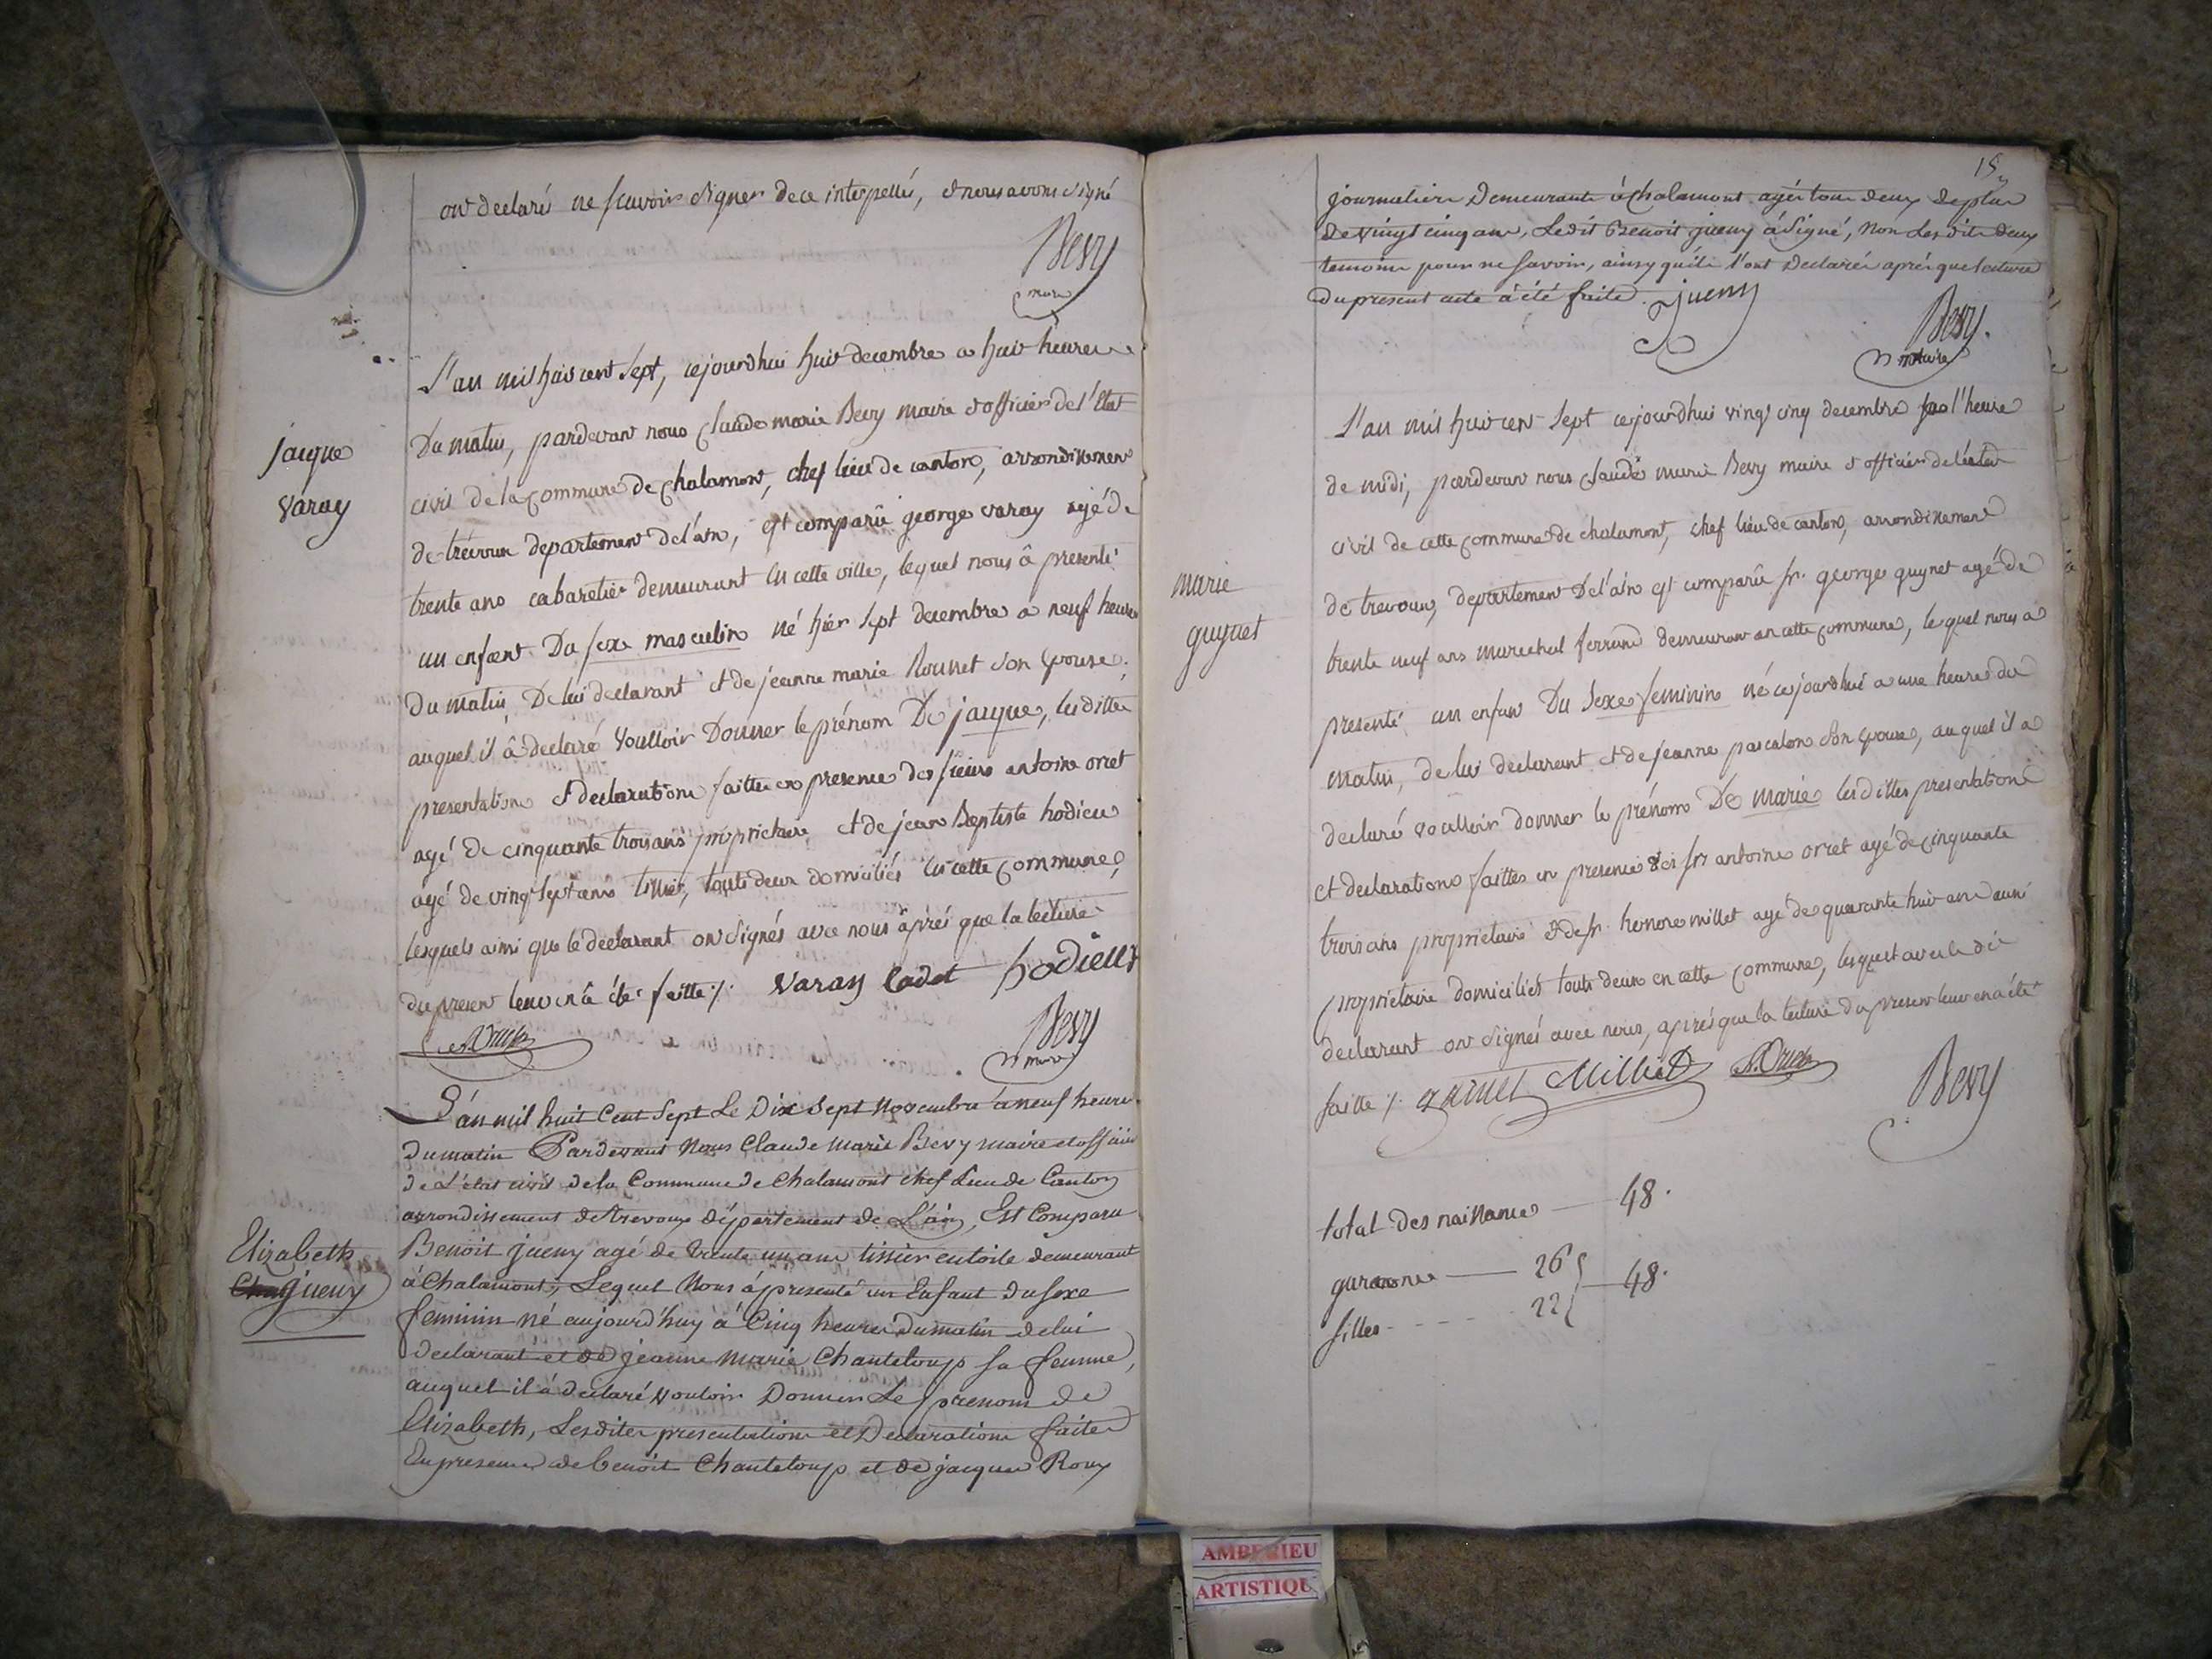 ont declaré ne scavoir signer de ce interpellés, et nous avons signé
Bevy
maire
jacque
varay
L'an mil huit cent sept, cejourdhui huit decembre a huit heures
Du matin, pardevant nous Claude marie Bevy maire et officier de l'Etat
civil de la Commune de Chalamont, chef lieu de canton, arrondissement
de trévoux departement de l'ain, est comparû george varay agé de
trente ans cabaretier demeurant en cette ville, lequel nous â presenté
un enfant Du sexe masculin né hier sept decembre a neuf heures
Du matin De lui declarant et de jeanne marie Rounet son epouse,
auquel il â declaré voulloir Donner le prénom De jacque, lesdittes
presentation et declaration faittes en presence des sieurs antoine orcet
agé de cinquante trois ans proprietaire et de jean Baptiste hodieu
agé de vingt sept ans tissier, touts deux domiciliés en cette Commune,
lesquels ainsi que le declarant ont signés avec nous âprés que la lecture
du present leur en â été faitte ./.
varay Cadet
hodieux
A. Orcet
Bevy
maire
L'an mil huit Cent Sept Le Dix Sept Novembre a neuf heures
du matin Pardevant Nous Claude Marie Bevy maire et officier
de L'état civil de la Commune de Chalamont chef Lieu de Canton
arrondissement de trevoux département de L'ain, Est Comparu
Elizabeth
jueny
Benoit jueny agé de trente un ans tissier en toile demeurant
à Chalamont, Lequel Nous á presenté un Enfant du sexe
feminin né aujourd'huy à Cinq heures du matin de lui
declarant et de jeanne Marie Chanteloup sa femme,
auquel il á declaré vouloir Donner Le prenom de
Elizabeth, Lesdites presentation et Declaration faites
En presence de benoit Chanteloup et de jacques Roux
15
journaliers Demeurants á Chalamont agés tous deux de plus
de vingt cinq ans, Ledit Benoit jueny á Signé, Non Lesdits deux
temoins pour ne savoir, ainsy qu'ils l'ont declarés aprés que lecture
du present acte à été faite.
jueny
Bevy
maire
marie
guynet
L'an mil huit cent sept cejourdhui vingt cinq decembre l'heure
de midi, pardevant nous Claude marie Bevy maire et officier de l'état
civil de cette Commune de chalamont, chef lieu de canton, arrondissement
de trevoux, departement De l'ain est comparû sr. george guynet agé de
trente neuf ans marechal ferrand demeurant en cette Commune, lequel nous a
presenté un enfant Du Sexe feminin né cejourdhui a une heure du
matin, de lui declarant et de jeanne pascalon son epouse, auquel il a
declaré voulloir donner le prénom De marie lesdittes presentation
et declaration faittes en presence des srs antoine orcet agé de cinquante
trois ans proprietaire et de sr. honore millet agé de quarante huit ans aussi
proprietaire domiciliés touts deux en cette Commune, lesquels avec le dit
declarant ont signés avec nous, aprés que la lecture du present leur en a été
faitte ./.
Milliet
A. Orcet
Bevy
total Des naissances — 48.
garcons — 26
— 48.
filles - - - - 22
AMBERIEU
ARTISTIQU